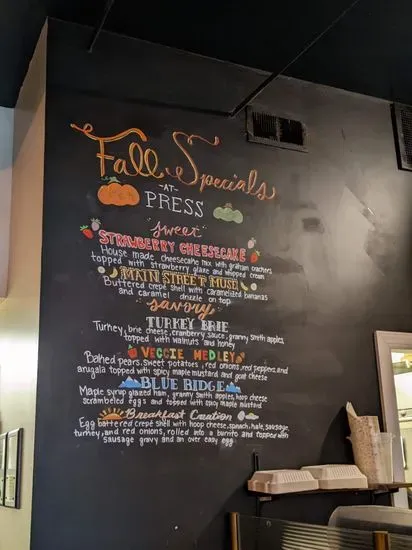 Fall Specials
-AT-
PRESS
"sweet"
STRAWBERRY CHEESECAKE
House made cheesecake mix with graham crackers
topped with strawberry glaze and whipped cream
MAIN STREET MUSE
Buttered crepé shell with caramelized bananas
and caramel drizzle on top
savory
TURKEY BRIE
Turkey, brie cheese, cranberry sauce, granny smith apples,
topped with walnuts and honey
VEGGIE MEDLEY
Baked pears, sweet potatoes, red onions, red peppers, and
arugala topped with spicy maple mustard and goat cheese
BLUE RIDGE
Maple syrup glazed ham, granny smith apples, hoop cheese
scrambled eggs and topped with spicy maple mustard
Breakfast Creation
Egg battered crepé shell with hoop cheese, spinach, kale, sausage,
turkey, and red onions, rolled into a burrito and topped with
sausage gravy and an over easy egg